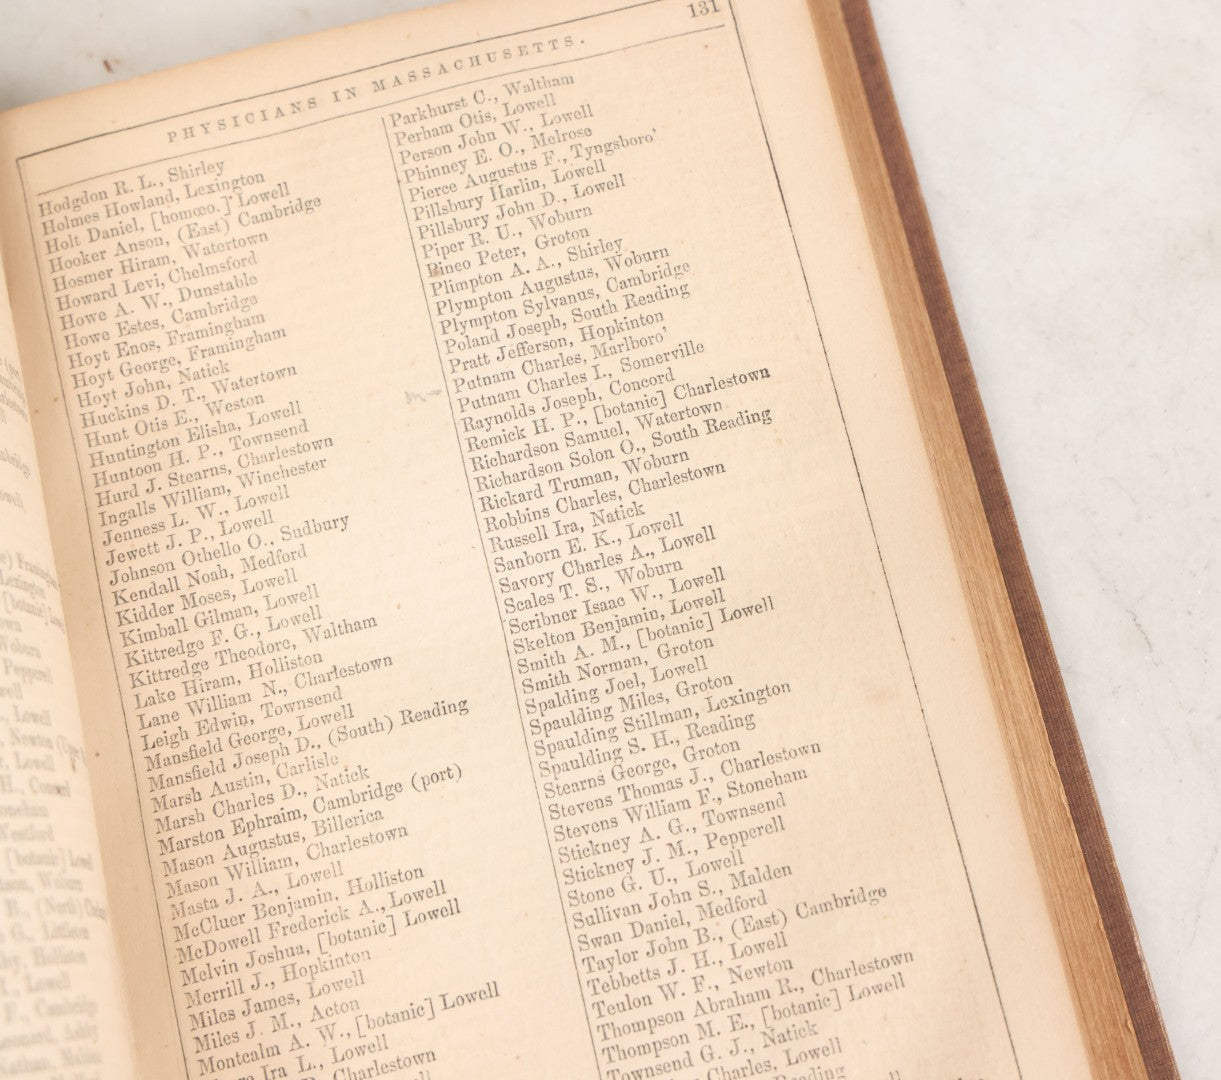 131
PHYSICIANS IN MASSACHUSETTS.
Hodgdon R. L., Shirley
Holmes Howland, Lexington
Holt Daniel, [homœo.] Lowell
Hooker Anson, (East) Cambridge
Hosmer Hiram, Watertown
Howard Levi, Chelmsford
Howe A. W., Dunstable
Howe Estes, Cambridge
Hoyt Enos, Framingham
Hoyt George, Framingham
Hoyt John, Natick
Huckins D. T., Watertown
Hunt Otis E., Weston
Huntington Elisha, Lowell
Huntoon H. P., Townsend
Hurd J. Stearns, Charlestown
Ingalls William, Winchester
Jenness L. W., Lowell
Jewett J. P., Lowell
Johnson Othello O., Sudbury
Kendall Noah, Medford
Kidder Moses, Lowell
Kimball Gilman, Lowell
Kittredge F. G., Lowell
Kittredge Theodore, Waltham
Lake Hiram, Holliston
Lane William N., Charlestown
Leigh Edwin, Townsend
Mansfield George, Lowell
Mansfield Joseph D., (South) Reading
Marsh Austin, Carlisle
Marsh Charles D., Natick
Marston Ephraim, Cambridge (port)
Mason Augustus, Billerica
Mason William, Charlestown
Masta J. A., Lowell
McCluer Benjamin, Holliston
McDowell Frederick A., Lowell
Melvin Joshua, [botanic] Lowell
Merrill J., Hopkinton
Miles James, Lowell
Miles J. M., Acton
Montcalm A. W., [botanic] Lowell
Ira L., Lowell
Charlestown
Parkhurst C., Waltham
Perham Otis, Lowell
Person John W., Lowell
Phinney E. O., Melrose
Pierce Augustus F., Tyngsboro'
Pillsbury Harlin, Lowell
Pillsbury John D., Lowell
Piper R. U., Woburn
Pineo Peter, Groton
Plimpton A. A., Shirley
Plympton Augustus, Woburn
Plympton Sylvanus, Cambridge
Poland Joseph, South Reading
Pratt Jefferson, Hopkinton
Putnam Charles, Marlboro'
Putnam Charles I., Somerville
Raynolds Joseph, Concord
Remick H. P., [botanic] Charlestown
Richardson Samuel, Watertown
Richardson Solon O., South Reading
Rickard Truman, Woburn
Robbins Charles, Charlestown
Russell Ira, Natick
Sanborn E. K., Lowell
Savory Charles A., Lowell
Scales T. S., Woburn
Scribner Isaac W., Lowell
Skelton Benjamin, Lowell
Smith A. M., [botanic] Lowell
Smith Norman, Groton
Spalding Joel, Lowell
Spaulding Miles, Groton
Spaulding Stillman, Lexington
Spaulding S. H., Reading
Stearns George, Groton
Stevens Thomas J., Charlestown
Stevens William F., Stoneham
Stickney A. G., Townsend
Stickney J. M., Pepperell
Stone G. U., Lowell
Sullivan John S., Malden
Swan Daniel, Medford
Taylor John B., (East) Cambridge
Tebbetts J. H., Lowell
Teulon W. F., Newton
Thompson Abraham R., Charlestown
Thompson M. E., [botanic] Lowell
Townsend G. J., Natick
Charles, Lowell
Reading